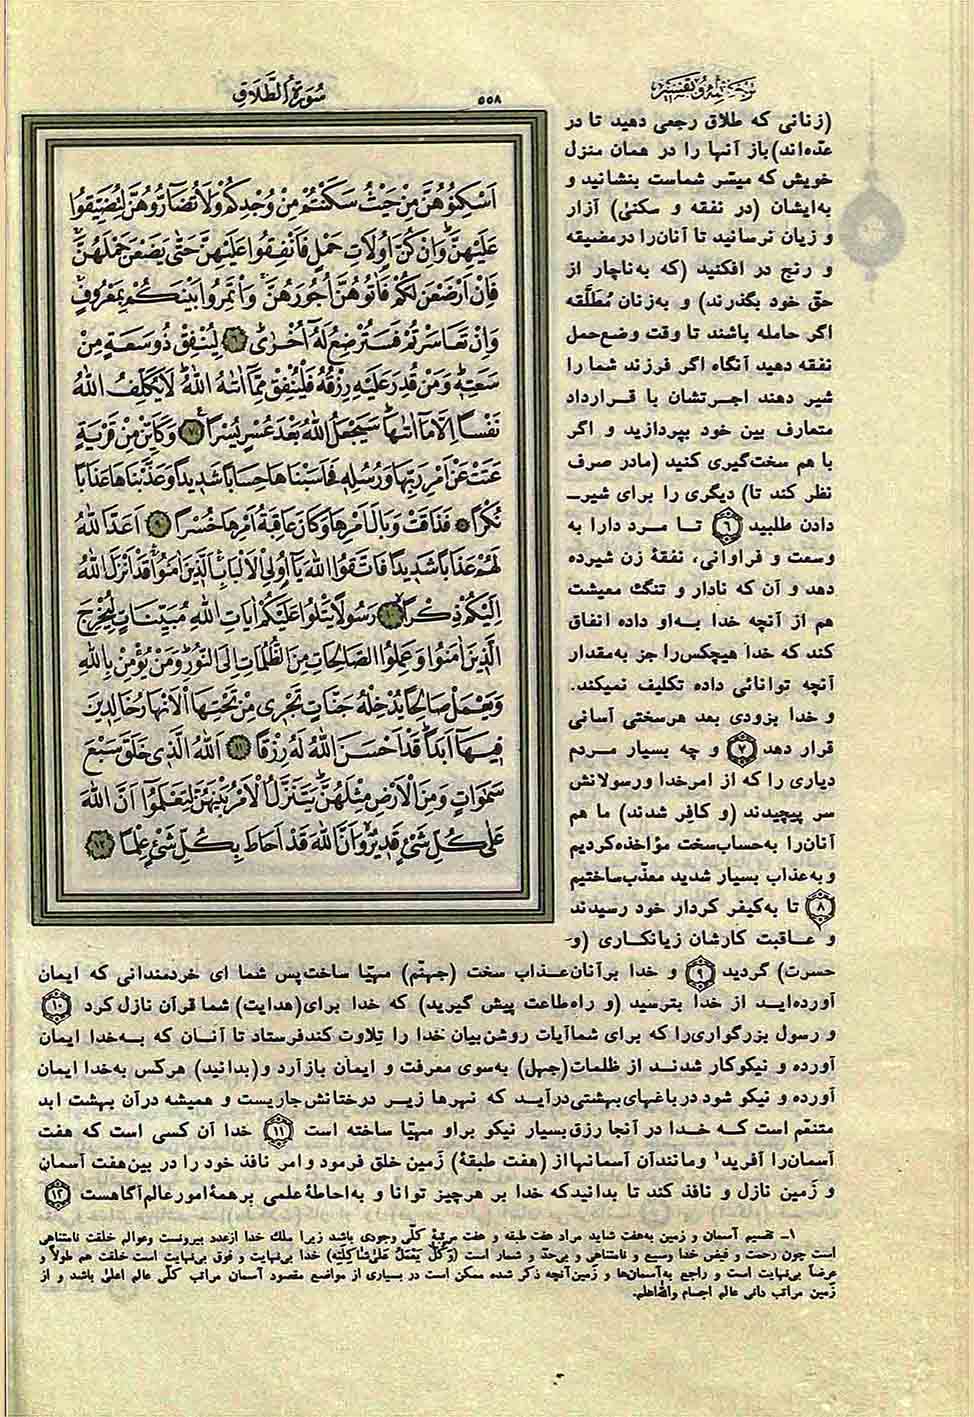 ترجمه و تفسیر
۵۵۸
سُورَةُ الطَّلَاقِ
(زنانی که طلاق رجعی دهید تا در
عدّه‌اند) باز آنها را در همان منزل
خویش که میسّر شماست بنشانید و
به‌ایشان (در نفقه و سکنیٰ) آزار
و زیان نرسانید تا آنان‌را در مضیقه
و رنج در افکنید (که به‌ناچار از
حقّ خود بگذرند) و به‌زنان مُطَلَّقه
اگر حامله باشند تا وقت وضع‌حمل
نفقه دهید آنگاه اگر فرزند شما را
شیر دهند اجرتشان با قرارداد
متعارف بین خود بپردازید و اگر
با هم سخت‌گیری کنید (مادر صرف
نظر کند تا) دیگری را برای شیر-
دادن طلبید ۶ تا مرد دارا به
وسعت و فراوانی، نفقهٔ زن شیرده
دهد و آن که نادار و تنگ معیشت
هم از آنچه خدا به‌او داده انفاق
کند که خدا هیچکس‌را جز به‌مقدار
آنچه توانائی داده تکلیف نمیکند.
و خدا بزودی بعد هرسختی آسانی
قرار دهد ۷ و چه بسیار مردم
دیاری را که از امرخدا ورسولانش
سر پیچیدند (و کافر شدند) ما هم
آنان‌را به‌حساب‌سخت مؤاخذه‌کردیم
و به‌عذاب بسیار شدید معذّب‌ساختیم
۸ تا به‌کیفر کردار خود رسیدند
و عاقبت کارشان زیانکاری (و-
حسرت) گردید ۹ و خدا برآنان‌عذاب سخت (جهنّم) مهیّا ساخت‌پس شما ای خردمندانی که ایمان
آورده‌اید از خدا بترسید (و راه‌طاعت پیش گیرید) که خدا برای(هدایت) شما قرآن نازل کرد ۱۰
و رسول بزرگواری‌را که برای شماآیات روشن‌بیان خدا را تلاوت کندفرستاد تا آنان که به‌خدا ایمان
آورده و نیکوکار شدند از ظلمات(جهل) به‌سوی معرفت و ایمان بازآرد و(بدانید) هرکس به‌خدا ایمان
آورده و نیکو شود درباغهای‌بهشتی‌درآید که نهرها زیر درختانش‌جاریست و همیشه درآن بهشت ابد
متنعّم است که خدا در آنجا رزق‌بسیار نیکو براو مهیّا ساخته است ۱۱ خدا آن کسی است که هفت
آسمان‌را آفرید۱ ومانندآن آسمانهااز (هفت طبقهٔ) زمین خلق فرمود وامر نافذ خود را در بین‌هفت آسمان
و زمین نازل و نافذ کند تا بدانیدکه خدا بر هرچیز توانا و به‌احاطهٔ علمی برهمهٔ امورعالم‌آگاهست ۱۲
اَسْكِنُوهُنَّ مِنْ حَيْثُ سَكَنْتُمْ مِنْ وُجْدِكُمْ وَلَا تُضَآرُّوهُنَّ لِتُضَيِّقُوا
عَلَيْهِنَّ وَاِنْ كُنَّ اُولَاتِ حَمْلٍ فَاَنْفِقُوا عَلَيْهِنَّ حَتّٰى يَضَعْنَ حَمْلَهُنَّ
فَاِنْ اَرْضَعْنَ لَكُمْ فَاٰتُوهُنَّ اُجُورَهُنَّ وَأْتَمِرُوا بَيْنَكُمْ بِمَعْرُوفٍ
وَاِنْ تَعَاسَرْتُمْ فَسَتُرْضِعُ لَهُ اُخْرٰى ۶ لِيُنْفِقْ ذُو سَعَةٍ مِنْ
سَعَتِهِ وَمَنْ قُدِرَ عَلَيْهِ رِزْقُهُ فَلْيُنْفِقْ مِمَّا اٰتٰهُ اللهُ لَا يُكَلِّفُ اللهُ
نَفْسًا اِلَّا مَا اٰتٰهَا سَيَجْعَلُ اللهُ بَعْدَ عُسْرٍ يُسْرًا ۷ وَكَاَيِّنْ مِنْ قَرْيَةٍ
عَتَتْ عَنْ اَمْرِ رَبِّهَا وَرُسُلِهِ فَحَاسَبْنَاهَا حِسَابًا شَدِيدًا وَعَذَّبْنَاهَا عَذَابًا
نُكْرًا فَذَاقَتْ وَبَالَ اَمْرِهَا وَكَانَ عَاقِبَةُ اَمْرِهَا خُسْرًا ۹ اَعَدَّ اللهُ
لَهُمْ عَذَابًا شَدِيدًا فَاتَّقُوا اللهَ يَا اُولِي الْاَلْبَابِ الَّذِينَ اٰمَنُوا قَدْ اَنْزَلَ اللهُ
اِلَيْكُمْ ذِكْرًا ۱۰ رَسُولًا يَتْلُوا عَلَيْكُمْ اٰيَاتِ اللهِ مُبَيِّنَاتٍ لِيُخْرِجَ
الَّذِينَ اٰمَنُوا وَعَمِلُوا الصَّالِحَاتِ مِنَ الظُّلُمَاتِ اِلَى النُّورِ وَمَنْ يُؤْمِنْ بِاللهِ
وَيَعْمَلْ صَالِحًا يُدْخِلْهُ جَنَّاتٍ تَجْرِي مِنْ تَحْتِهَا الْاَنْهَارُ خَالِدِينَ
فِيهَا اَبَدًا قَدْ اَحْسَنَ اللهُ لَهُ رِزْقًا ۱۱ اَللهُ الَّذِي خَلَقَ سَبْعَ
سَمٰوَاتٍ وَمِنَ الْاَرْضِ مِثْلَهُنَّ يَتَنَزَّلُ الْاَمْرُ بَيْنَهُنَّ لِتَعْلَمُوا اَنَّ اللهَ
عَلٰى كُلِّ شَيْءٍ قَدِيرٌ وَاَنَّ اللهَ قَدْ اَحَاطَ بِكُلِّ شَيْءٍ عِلْمًا ۱۲
۱- تقسیم آسمان و زمین به‌هفت شاید مراد هفت طبقه و هفت مرتبهٔ کلّی وجودی باشد زیرا ملک خدا ازعدد بیرونست وعوالم خلقت نامتناهی
است چون رحمت و فیض خدا وسیع و نامتناهی و بی‌حدّ و شمار است (وَكُلٌّ يَعْمَلُ عَلىٰ شاكِلَتِهِ) خدا بی‌نهایت و فوق بی‌نهایت است خلقت هم طولاً و
عرضاً بی‌نهایت است و راجع به‌آسمان‌ها و زمین‌آنچه ذکر شده ممکن است در بسیاری از مواضع مقصود آسمان مراتب کلّی عالم اعلی باشد و از
زمین مراتب دانی عالم اجسام واللهاعلم.